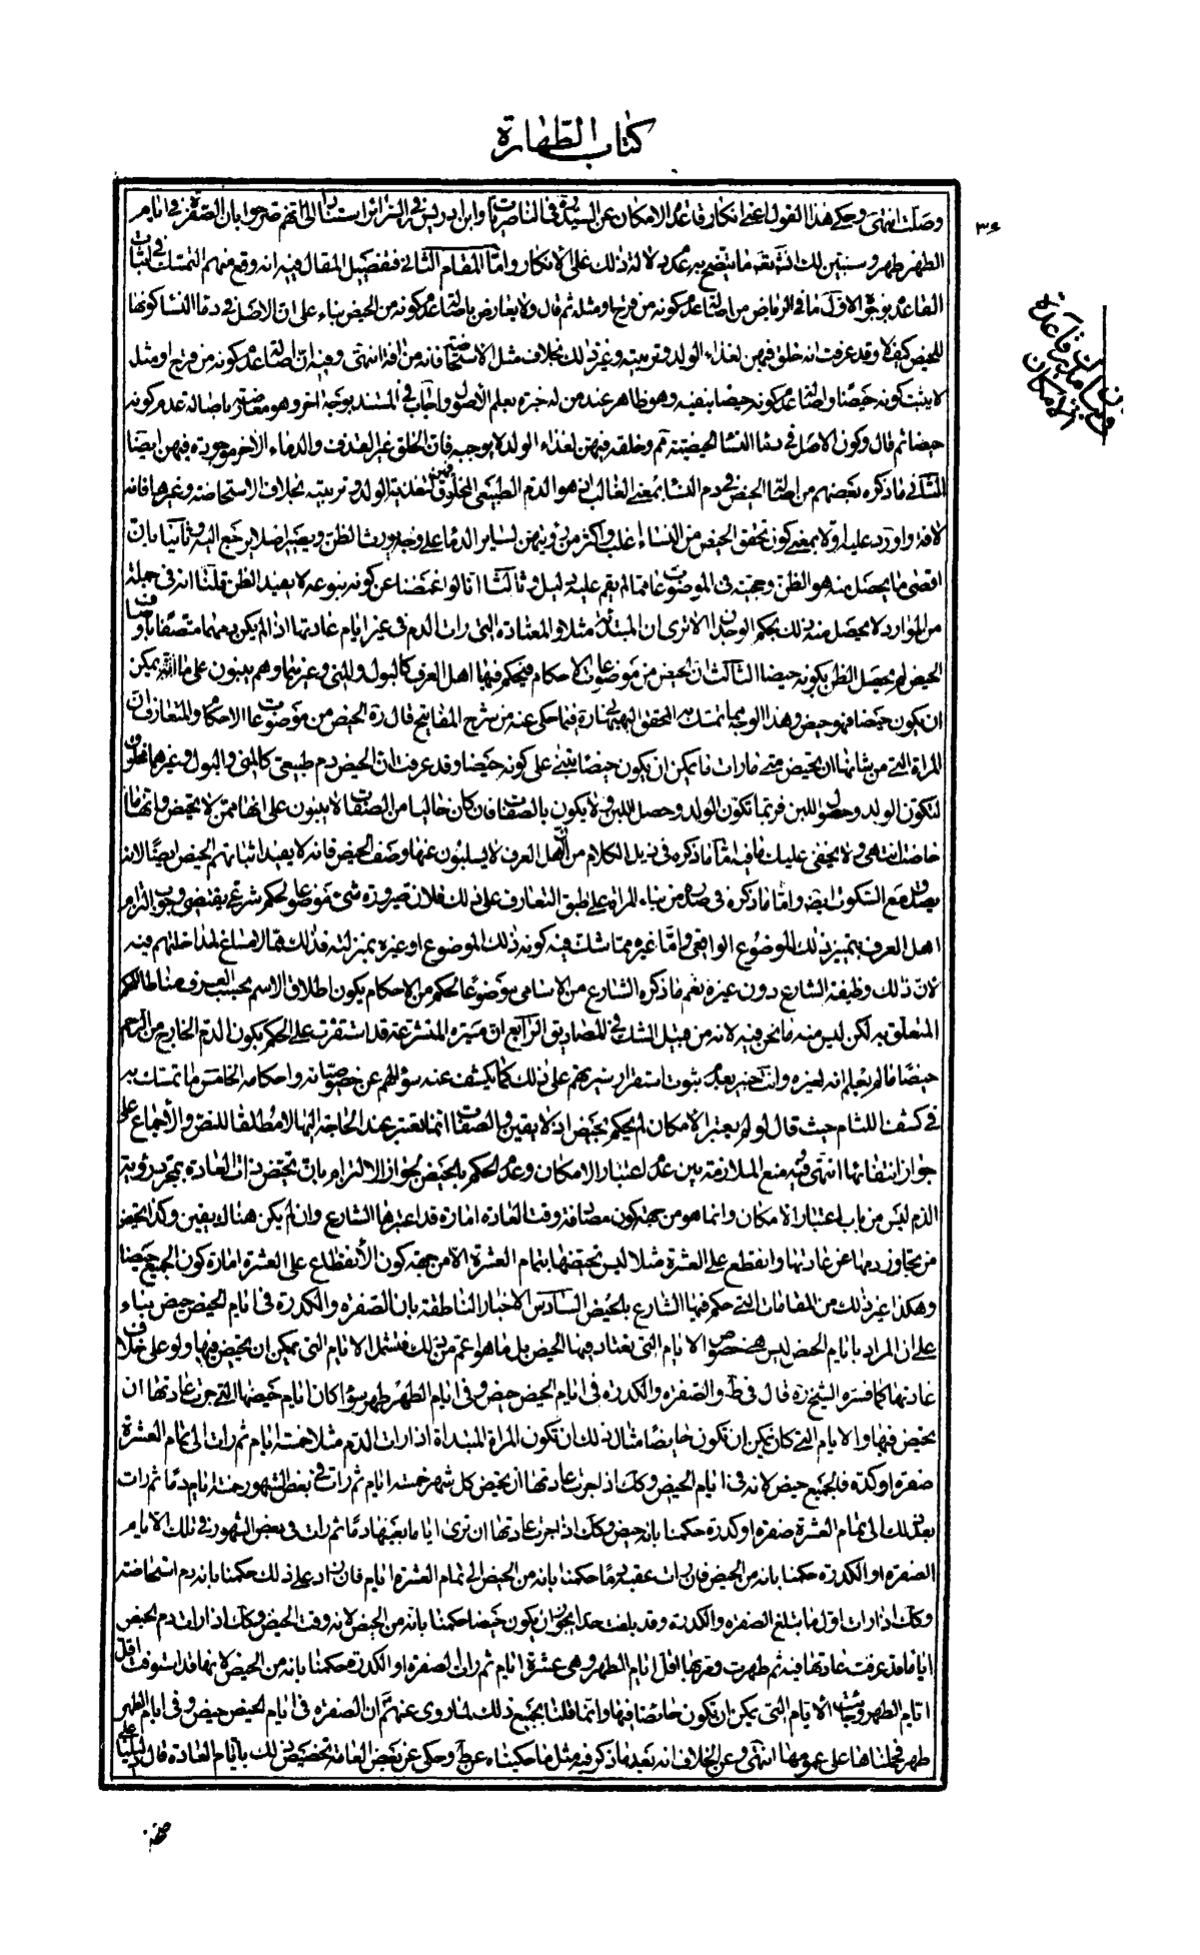 كتاب الطهارة
وصلت انتهى وحكى هذا القول اعنى انكار قاعدة الامكان عن السيد ره في الناصريات وابن ادريس في السرائر استنادا الى انهم صرحوا بان الصفرة في ايام
الطهر طهر وسنبين لك انش تعالى ما يتضح به عدم دلالة ذلك على الانكار واما المقام الثاني فتفصيل المقال فيه انه وقع منهم التمسك في اثبات
القاعدة بوجوه الاول ما في الرياض من اصالة عدم كونه من قرح او مثله ثم قال ولا يعارض باصالة عدم كونه من الحيض بناء على ان الاصل في دماء النساء كونها
للحيض كيف لا وقد عرفت انه خلق فيهن لغذاء الولد وتربيته وغير ذلك بخلاف مثل الاستحاضة فانه من افة انتهى وفيه ان اصالة عدم كونه من قرح او مثله
لا يثبت كونه حيضا واصالة عدم كونه حيضا بنفيه وهو ظاهر عند من له خبرة بعلم الاصول واجاب في المستند بوجه اخر وهو معارضته باصالة عدم كونه
حيضا ثم قال وكون الاصل في دماء النساء الحيضية تم وخلقه فيهن لغذاء الولد لا يوجبه فان الخلق غير القذف والدماء الاخر موجودة فيهن ايضا
الثاني ما ذكره بعضهم من اصالة الحيض في دم النساء بمعنى الغالب اذ هو الدم الطبيعي المخلوق فيهن لتغذية الولد وتربيته بخلاف الاستحاضة وغيرها فانه
لافة واورد عليه اولا بمعنى كون تحقق الحيض من النساء اغلب واكثر من رؤيتهن لسائر الدماء على وجه يورث الظن ويصير اصلا يرجع اليه وثانيا بان
اقصى ما يحصل منه هو الظن وحجيته في الموضوعات مما لم يقم عليه دليل وثالثا انا لو اغمضنا عن كونه بنوعه لا يفيد الظن قلنا انه في جملة
من الموارد لا يحصل منه ذلك بحكم الوجدان الا ترى ان المبتدئة مثلا والمعتادة التي رات الدم في غير ايام عادتها اذا لم يكن دمهما متصفا باوصاف
الحيض لم يحصل الظن بكونه حيضا الثالث ان الحيض من موضوعات الاحكام فيحكم فيها اهل العرف كالبول والمني وغيرهما وهم يبنون على ما يمكن
ان يكون حيضا فهو حيض وهذا الوجه مما تمسك به المحقق البهبهاني ره فيما حكى عنه من شرح المفاتيح قال ره الحيض من موضوعات الاحكام والمتعارف ان
المراة التي من شانها ان تحيض متى ما رات ما يمكن ان يكون حيضا تبنى على كونه حيضا وقد عرفت ان الحيض دم طبيعي كالمني والبول وغيرهما مخلوق
لتكون الولد وحصول اللبن فربما تكون الولد وحصل اللبن ولا يكون بالصفات فان كان خاليا من الصفات لا يبنون على انها ممن لا تحيض وانها ما
حاضت انتهى ولا يخفى عليك ما فيه اما ما ذكره في ذيل الكلام من ان اهل العرف لا يسلبون عنها وصف الحيض فانه لا يفيد اثباتهم الحيض ايضا لانه
يصدق مع السكوت ايضا واما ما ذكره في صدره من بناء المراة على طبق المتعارف على ذلك فلان صيرورة شيء موضوعا لحكم شرعي يقتضي وجوب التزام
اهل العرف بتمييز ذلك الموضوع الواقعي واما غيره مما شك فيه كونه ذلك الموضوع او غيره بمنزلته فذلك مما لا مساغ لمداخلتهم فيه
لان ذلك وظيفة الشارع دون غيره نعم ما ذكره الشارع من الاسامي موضوعا لحكم من الاحكام يكون اطلاق الاسم بحسب العرف مناطا للحكم
المتعلق به لكن ليس منه ما نحن فيه لانه من قبيل الشك في المصاديق الرابع ان سيرة المتشرعة قد استقرت على الحكم بكون الدم الخارج من الرحم
حيضا ما لم يعلم انه لغيره وانت خبير بعدم ثبوت استقرار سيرتهم على ذلك كما يكشف عنه سؤالهم عن خصوصياته واحكامه الخامس ما تمسك به
في كشف اللثام حيث قال لو لم يعتبر الامكان لم يحكم بحيض اذ لا يقين والصفات انما تعتبر عند الحاجة اليها لا مطلقا للنص والاجماع على
جواز انتفائها انتهى وفيه منع الملازمة بين عدم اعتبار الامكان وعدم الحكم بالحيض لجواز الالتزام بان تحيض ذات العادة بمجرد رؤية
الدم ليس من باب اعتبار الامكان وانما هو من جهة كون مصادفة وقت العادة امارة قد اعتبرها الشارع وان لم يكن هناك يقين وكذا تحيض
من تجاوز دمها عن عادتها وانقطع على العشرة مثلا ليس تحيضها بتمام العشرة الا من جهة كون الانقطاع على العشرة امارة كون الجميع حيضا
وهكذا غير ذلك من المقامات التي حكم فيها الشارع بالحيض السادس الاخبار الناطقة بان الصفرة والكدرة في ايام الحيض حيض بناء
على ان المراد بايام الحيض ليس هو خصوص الايام التي تعتاد فيها الحيض بل ما هو اعم من ذلك فتشمل الايام التي يمكن ان تحيض فيها ولو على خلاف
عادتها كما فسره الشيخ ره قال في ط والصفرة والكدرة في ايام الحيض حيض وفي ايام الطهر طهر سواء كان ايام حيضها التي جرت عادتها ان
تحيض فيها او الايام التي كان يمكن ان تكون حايضا مثال ذلك ان تكون المراة المبتداة اذا رات الدم مثلا خمسة ايام ثم رات الى تمام العشرة
صفرة او كدرة فالجميع حيض لانه في ايام الحيض وكك اذا جرت عادتها ان تحيض كل شهر خمسة ايام ثم رات في بعض الشهور خمسة ايام دما ثم رات
بعد ذلك الى تمام العشرة صفرة او كدرة حكمنا بانه حيض وكك اذا جرت عادتها ان ترى اياما بعينها دما ثم رات في بعض الشهور في تلك الايام
الصفرة او الكدرة حكمنا بانه من الحيض فان رات عقيبه دما حكمنا بانه من الحيض الى تمام العشرة ايام فان زاد على ذلك حكمنا بانه دم استحاضة
وكك اذا رات اول ما تبلغ الصفرة والكدرة وقد بلغت حدا يجوز ان يكون حيضا حكمنا بانه من الحيض لانه وقت الحيض وكك اذا رات دم الحيض
اياما قد عرفت عادتها فيه ثم طهرت ومر بها اقل ايام الطهر وهي عشرة ايام ثم رات الصفرة او الكدرة حكمنا بانه من الحيض لانها قد استوفت اقل
ايام الطهر وجائت الايام التي يمكن ان تكون حائضا فيها وانما قلنا بجميع ذلك لما روى عنهم ع ان الصفرة في ايام الحيض حيض وفي ايام الطهر
طهر فحملناها على عمومها انتهى وعن الخلاف انه بعد ما ذكر فيه مثل ما حكيناه عن ط وحكى عن بعض العامة تخصيص ذلك بايام العادة قال دليلنا على
٣٤
في بيان مدرك قاعدة الامكان
صحة